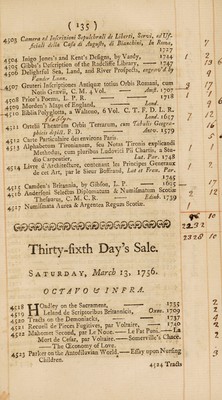 ( 135 )
4503 Camera ed Inscrizioni Sepulchrali de Liberti, Servi, ed Uf-
ficiali della Casa di Augusto, di Bianchini, In Roma,
1727
4504 Inigo Jones's and Kent's Designs, by Vardy, 1744
4505 Gibbs's Description of the Radcliffe Library, 1747
4506 Delightful Sea, Land, and River Prospects, engrav'd by
Vander Loon.
4507 Gruteri Inscriptiones Antiquæ totius Orbis Romani, cum
Notis Grævii, C. M. 4 Vol. Amst. 1707
4508 Prior's Poems, L. P. 1718
4509 Morden's Maps of England, Lond.
4510 Biblia Polyglotta, a Waltono, 6 Vol. C. T. F. D. L. R.
Lond. 1657
4511 Ortelii Theatrum Orbis Terrarum, cum Tabulis Geogra-
phicis depict. F. D. Antv. 1579
4512 Carte Particuliere des environs Paris.
4513 Alphabetum Tironianum, seu Notas Tironis explicandi
Methodus, cum pluribus Ludovici Pii Chartis, a Stu-
dio Carpentier. Lut. Par. 1748
4514 Livre d'Architecture, contenant les Principes Generaux
de cet Art, par le Sieur Boffrand, Lat et Fran. Par.
1745
4515 Camden's Britannia, by Gibson, L. P. 1695
4516 Andersoni Selectus Diplomatum & Numismatum Scotiæ
Thesaurus, C. M. C. R. Edinb. 1739
4517 Numismata Aurea & Argentea Regum Scotiæ.
Thirty-sixth Day's Sale.
SATURDAY, March 13. 1756.
OCTAVO & INFRA.
4518 HOadley on the Sacrament, 1735
4519 Leland de Scriptoribus Britannicis, Oxon. 1709
4520 Tracts on the Demoniacks, 1737
4521 Recueil de Pieces Fugitives, par Voltaire, 1740
4522 Mahomet Second, par Le Noue.—Le Fat Puni.—La
Mort de Cesar, par Voltaire.—Somerville's Chace.
—The Oeconomy of Love.
4523 Parker on the Antediluvian World.—Essay upon Nursing
Children.
4524 Tracts